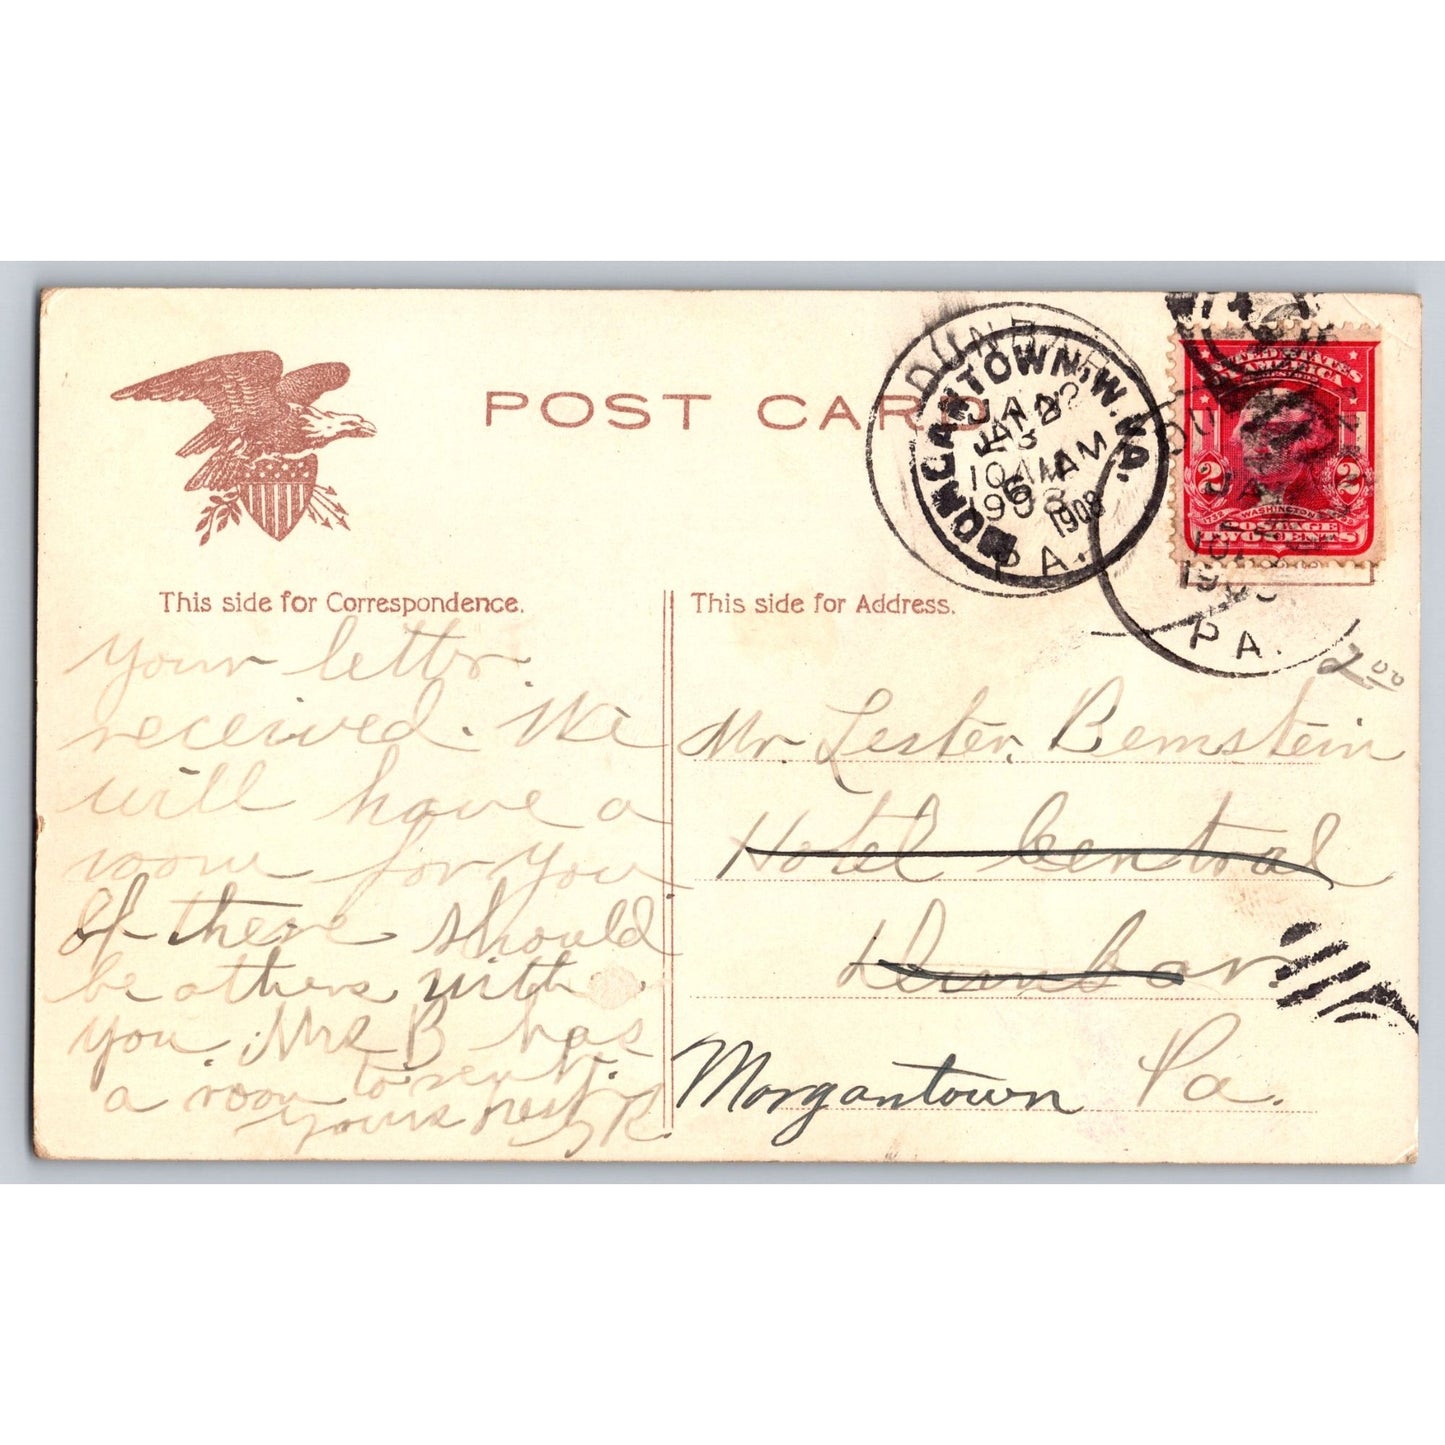 POST CARD
DUNBAR
MORGANTOWN, W. VA.
JAN 2
10 AM
1908
PA.
PA.
UNITED STATES
OF AMERICA
2 2
1732 WASHINGTON
POSTAGE
TWO CENTS
This side for Correspondence.
This side for Address.
2.00
your letter
received. We
will have a
room for you
If there should
be others with
you. Mrs B has
a room to rent.
Yours resp.
R.
Mr. Lester Bernstein
Hotel Central
Dunbar.
Morgantown Pa.